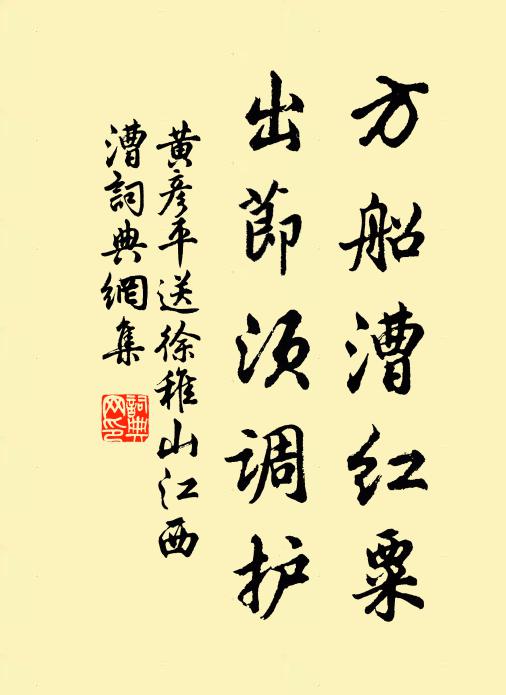 方船漕红粟
出節须调护
黄彦平送徐稚山江西
漕詞典網集
詞典網印